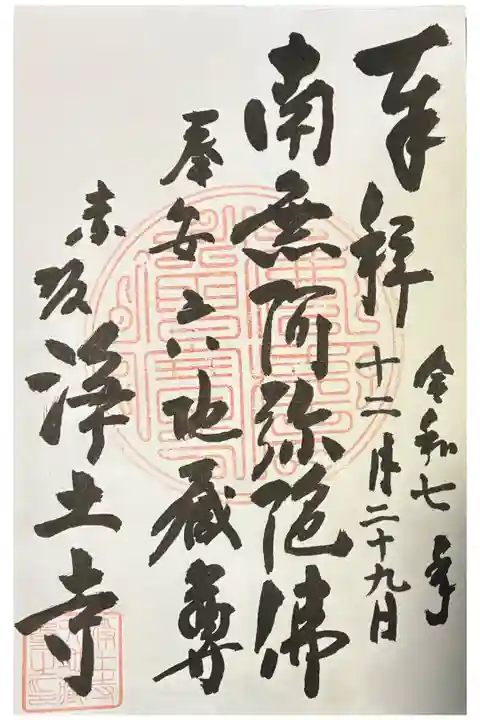 奉拝
令和七年
十二月二十九日
南無阿弥陀佛
奉安六地蔵尊
赤坂浄土寺